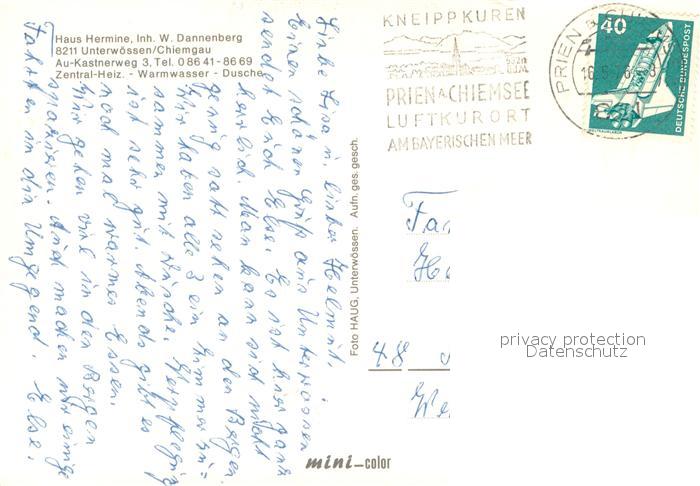 Haus Hermine, Inh. W. Dannenberg
8211 Unterwössen/Chiemgau
Au-Kastnerweg 3, Tel. 0 86 41 - 86 69
Zentral-Heiz. - Warmwasser - Dusche
KNEIPPKUREN
PRIEN A. CHIEMSEE
LUFTKURORT
AM BAYERISCHEN MEER
PRIEN a CHIEMSEE
40
DEUTSCHE BUNDESPOST
Liebe Lisa u. lieber Helmut,
Einen schönen Gruß aus Unterwössen
sendet Euch Else. Es ist hier ganz
herrlich. Man kann sich nicht
genug satt sehen an den Bergen.
Wir haben alle 3 ein Zimmer zu=
sammen mit Dusche. Verpflegung
ist sehr gut. Abends gibt es
noch mal warmes Essen.
Wir gehen viel in den Bergen
spazieren. Auch machen wir einige
Fahrten in die Umgegend. Else.
Foto HAUG, Unterwössen. Aufn. ges. gesch.
Fa
He
48
We
privacy protection
Datenschutz
mini-color